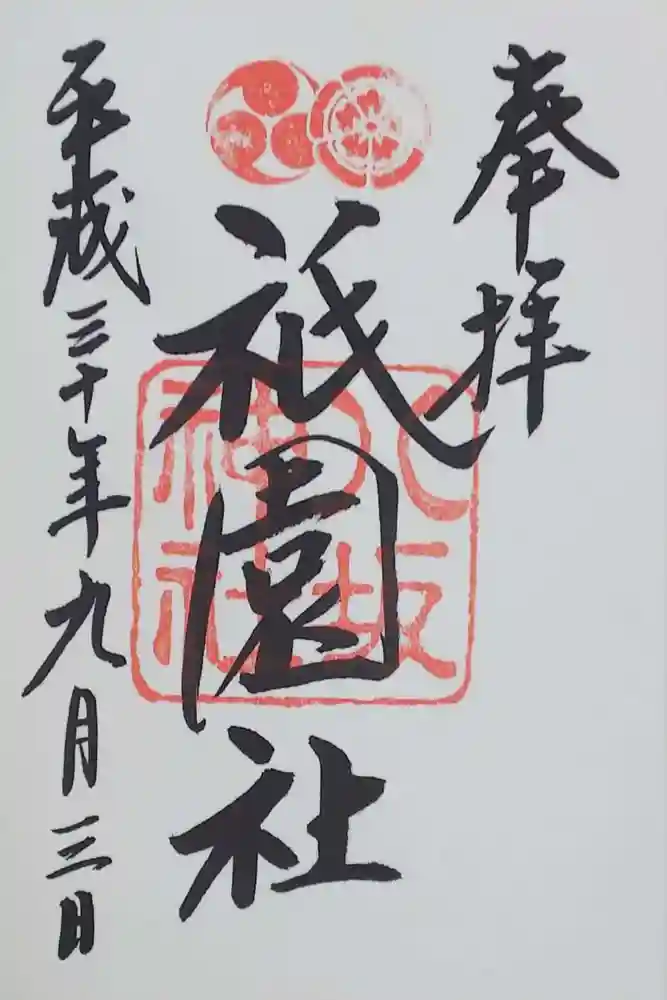 奉拝
祇園社
八坂
神社
平成三十年九月三日